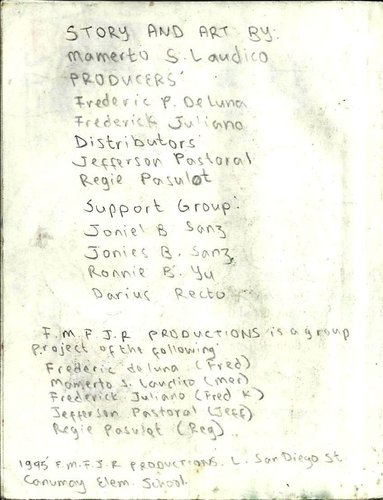 STORY AND ART BY:
Mamerto S. Laudico
PRODUCERS
Frederic P. DeLuna
Frederick Juliano
Distributors
Jefferson Pastoral
Regie Pasulot
Support Group:
Joniel B Sanz
Jonies B. Sanz
Ronnie B. Yu
Darius Recto
F.M.F.J.R PRODUCTIONS is a group
Project of the following
Frederic deluna (Fred)
Mamerto S. Laudico (mer)
Frederick Juliano (Fred K)
Jefferson Pastoral (Jeff)
Regie Pasulot (Reg)
1995 F.M.F.J.R PRODUCTIONS. L. San Diego St
Canumay Elem. School